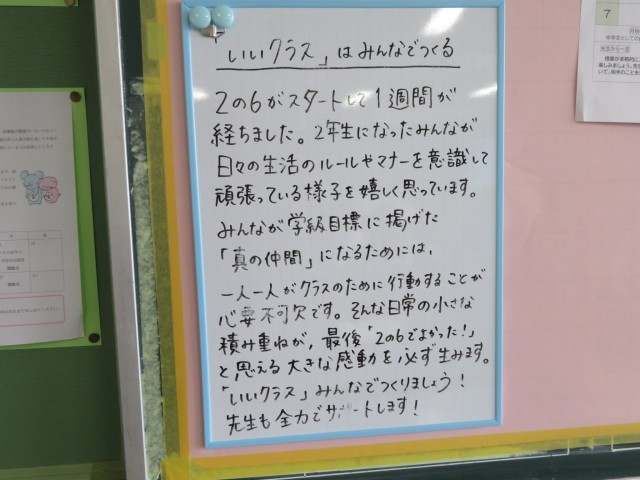 「いいクラス」はみんなでつくる
2の6がスタートして1週間が
経ちました。2年生になったみんなが
日々の生活のルールやマナーを意識して
頑張っている様子を嬉しく思っています。
みんなが学級目標に掲げた
「真の仲間」になるためには、
一人一人がクラスのために行動することが
心要不可欠です。そんな日常の小さな
積み重ねが、最後「2の6でよかった!」
と思える大きな感動を必ず生みます。
「いいクラス」みんなでつくりましょう!
先生も全力でサポートします!
7